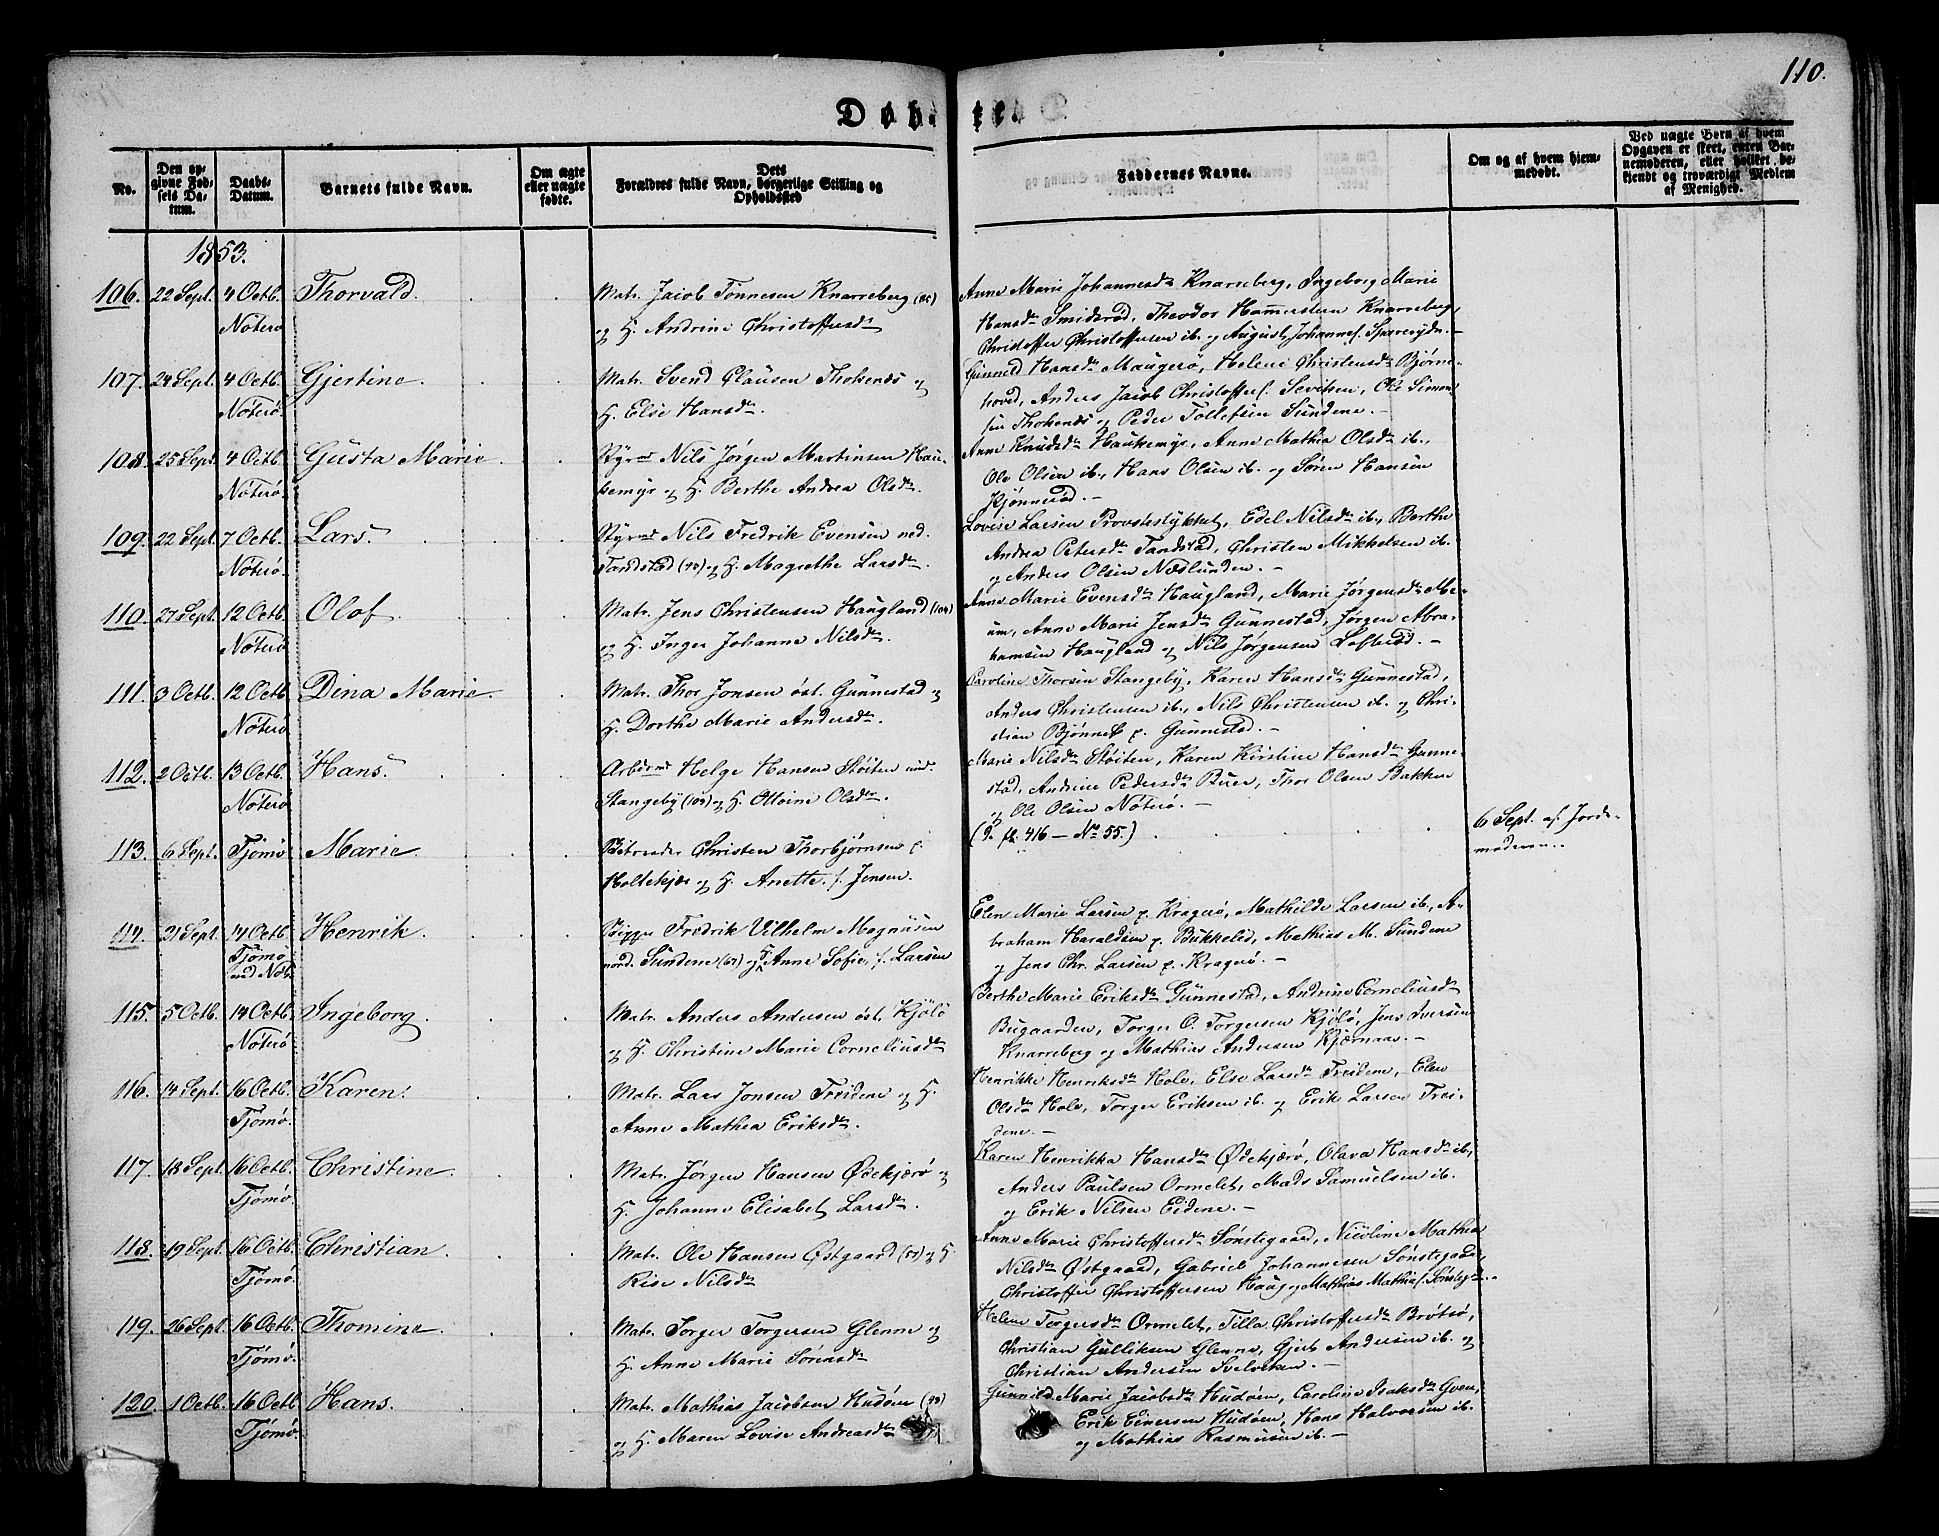 110.
Døbte
No.
Den opgivne Fødsels Datum.
Daabs-Datum.
Barnets fulde Navn.
Om ægte eller uægte fødte.
Dets Forældres fulde Navn, borgerlige Stilling og Opholdssted
Faddernes Navne.
Om og af hvem hjemmedøbt.
Ved uægte Børn af hvem Opgaven er skeet, enten Barnemoderen, eller hvilket bekjendt og troværdigt Medlem af Menighed.
1853.
106. 22 Sept. 4 Octb. Nøterø Thorvald.
Matr. Jacob Tønnesen Knarreberg
og H. Andrine Christoffersdr
Anne Marie Johannesdr Knarreberg, Ingeborg Marie
Hansdr Smidsrød, Theodor Hammersteen Knarreberg,
Christoffer Christoffersen ib. og August Johannes.
107. 24 Sept. 4 Octb. Nøterø. Gjertine.
Matr. Svend Clausen Thokenæs og
H. Else Hansdr.
Gunned Hansdr Maugerø, Helene Christensdr Bjørne-
hoved, Anders Jacob Christoffers. Ole Simon-
sen Thokenæs og Peder Tollefsen Sundene. -
108. 25 Sept. 4 Octb. Nøterø. Gusta Marie
Styrmd Nils Jørgen Martinsen Hau-
kemyr og H. Berthe Andrea Olsdr.
Anne Knudsdr Haukemyr, Anne Mathea Olsdr ib.,
Ole Olsen ib., Hans Olsen ib. og Søren Hansen
Kjønnerød. -
109. 22 Sept. 7 Octb. Nøterø. Lars.
Styrmd Nils Fredrik Evensen ned.
Tandstad (70) og H. Magrethe Larsdr.
Lovise Larsen Provstestykket, Edel Nilsdr ib., Berthe
Andrea Petersdr Tandstad, Christen Mikkelsen ib.
og Anders Olsen Næslunden. -
110. 27 Sept. 12 Octb. Nøterø Olof.
Matr. Jens Christensen Haugland (104)
og H. Inger Johanne Nilsdr.
Anne Marie Evensdr Haugland, Marie Jørgensdr Me-
um, Anne Marie Jensdr Gunnestad, Jørgen Abra-
hamsen Haugland og Nils Jørgensen -
111. 3 Octb. 12 Octb. Nøterø Dina Marie.
Matr. Thor Jonsen øst. Gunnestad og
H. Dorthe Marie Andersdr.
Caroline Thorsen Stangeby, Karen Hansdr Gunnestad,
Anders Christensen ib., Nils Christensen ib. og Chri-
stian p. Gunnestad. -
112. 2 Octb. 13 Octb. Nøterø Hans.
Arbdsmd Helge Hansen Støiten
Stangeby (109) og H. Ottoine Olsdr.
Marie Nilsdr Støiten, Karen Kirstine Hansdr Gunne-
stad, Andrine Pedersdr Buer, Thor Olsen Bakken
og Ole Olsen Nøterø. -
113. 6 Sept. Tjømø Marie.
Christen Thorbjørnsen p.
Holtekjær og H. Anette. f. Jensen.
(9. fl. 416 - No 55.)
6 Sept. af Jorde-
moderen..
114. 21 Sept. 14 Octb. Tjømø Henrik.
Fredrik Vilhelm Magnusen
nord. Sundene (61) og H. Anne Sofie, f. Larsen
Elen Marie Larsen p. Kragerø, Mathilde Larsen ib., A-
braham Haraldsen p. Bukkelid, Mathias M. Sundene
og Jens Chr. Larsen p. Kragerø. -
115. 5 Octb. 14 Octb. Nøterø Ingeborg.
Matr. Anders Andersen øst. Kjølø
og H. Christine Marie Corneliusdr
Berthe Marie Eriksdr Gunnestad, Andrine Corneliusdr
Bugaarden, Torger O. Torgersen Kjølø, Jens Iversen
Knarreberg og Mathias Andersen Kjærnaas. -
116. 14 Sept. 16 Octb. Tjømø. Karen.
Matr. Lars Jonsen Treidene og H.
Anne Mathea Eriksdr.
Henrikke Henriksdr Hole, Else Larsdr Treidene, Elen
Olsdr Hole, Torger Eriksen ib. og Erik Larsen Trei-
dene. -
117. 18 Sept. 16 Octb. Tjømø. Christine.
Matr. Jørgen Hansen Ødekjærø og
H. Johanne Elisabet Larsdr.
Karen Henrikka Hansdr Ødekjærø, Olava Hansdr ib.,
Anders Paulsen Ormelet, Mads Samuelsen ib.
og Erik Nilsen Eidene. -
118. 19 Sept. 16 Octb. Tjømø. Christian
Matr. Ole Hansen Østgaard og H.
Rise Nilsdr
Anne Marie Christoffersdr Sønstegaard, Nicoline Mathea
Nilsdr Østgaard, Gabriel Johannesen Sønstegaard,
Christoffer Christoffersen Haug og Mathias Mathias.
119. 26 Sept. 16 Octb. Tjømø. Thomine.
Matr. Torger Torgersen Glenne og
H. Anne Marie Sørensdr
Helene Torgersdr Ormelet, Tilla Christoffersdr Brøtsø,
Christian Gulliksen Glenne, Gjert Andersen ib. og
Christian Andersen Svelviken. -
120. 1 Octb. 16 Octb. Tjømø. Hans.
Matr. Mathias Jacobsen Hudøen (99)
og H. Maren Lovise Andreasdr
Gunnild Marie Jacobsdr Hudøen, Caroline Isaksdr Gven,
Erik Einersen Hudøen, Hans Halvorsen ib.
og Mathias Rasmusen ib. -